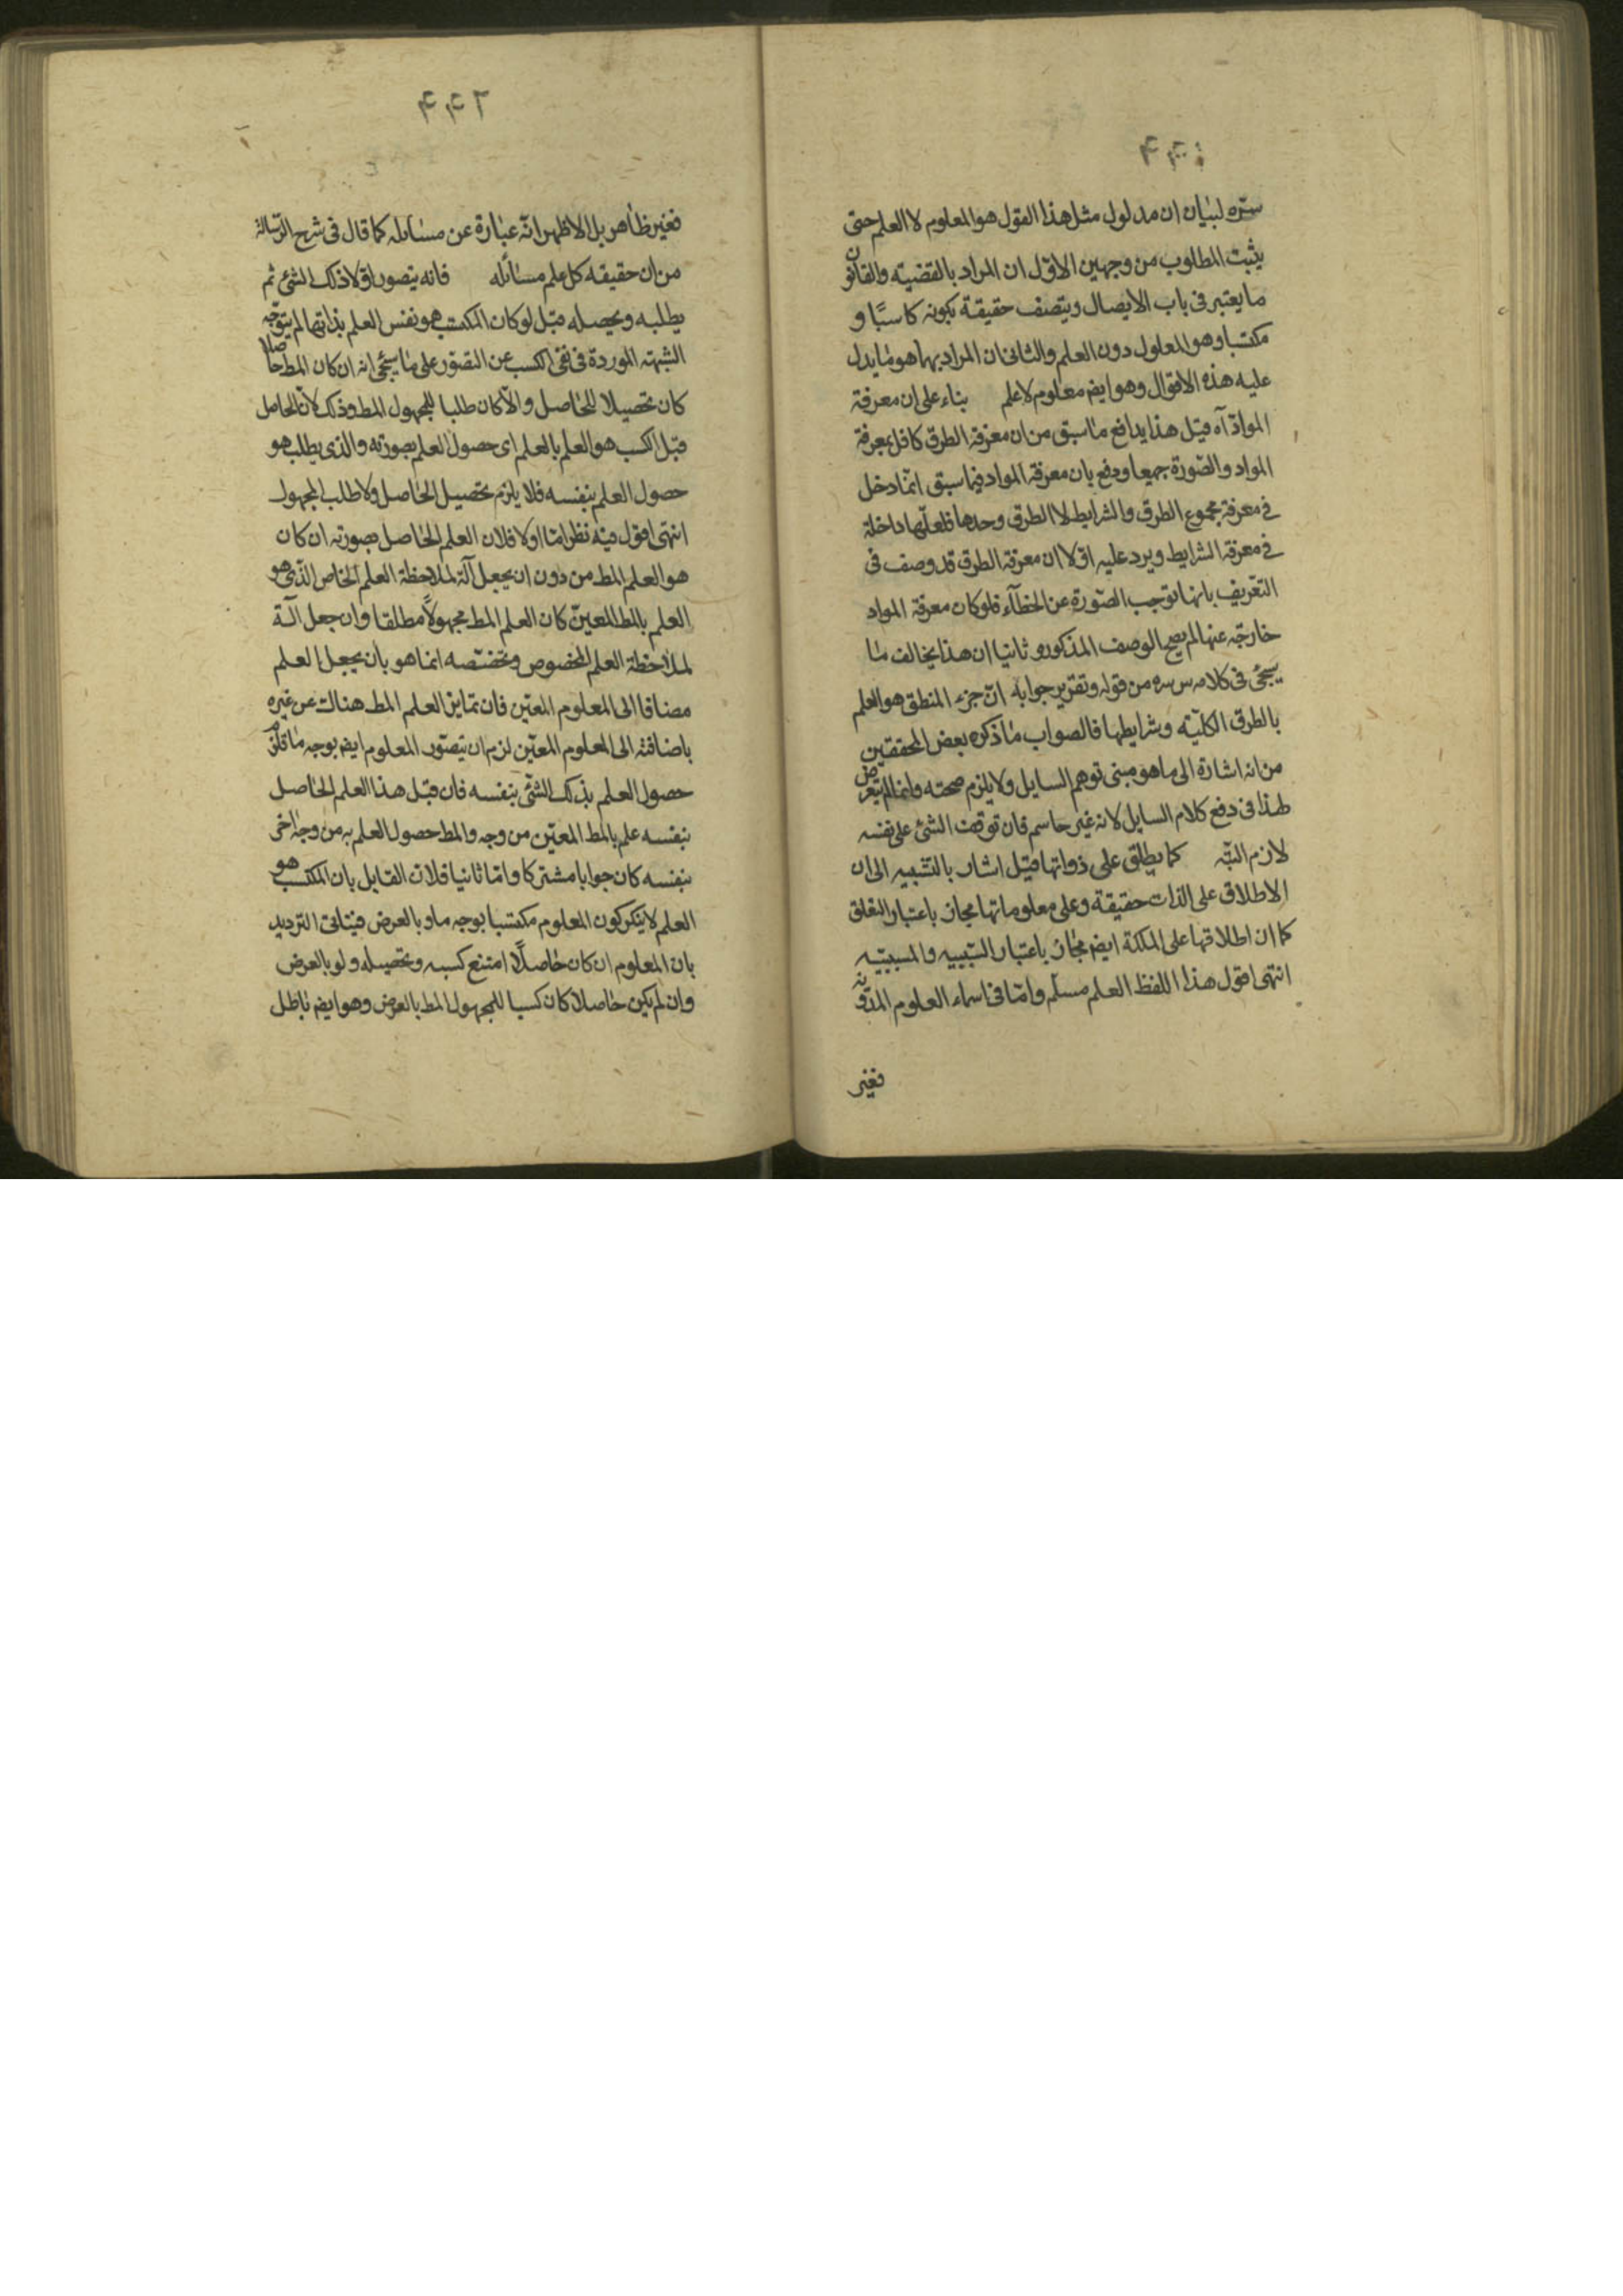 سره لبيان ان مدلول مثل هذا القول هو المعلوم لا العلم حتى
يثبت المطلوب من وجهين الاول ان المراد بالقضيته والقانون
ما يعتبر فى باب الايصال ويتصف حقيقة بكونه كاسبًا و
مكتسبا وهو المعلول دون العلم والثانى ان المراد بهما هو ما يدل
عليه هذه الاقوال وهو ايضم معلوم لا علم بناء على ان معرفة
المواد آه قيل هذا يدافع ما سبق من ان معرفة الطرق كافل بمعرفة
المواد والصورة جميعا ودفع بان معرفة المواد فيما سبق انما دخل
فى معرفة مجموع الطرق والشرايط لا الطرق وحدها فلعلها داخلة
فى معرفة الشرايط ويرد عليه اولا ان معرفة الطرق قد وصف فى
التعريف بانها توجب الصورة عن الخطاء فلو كان معرفة المواد
خارجه عنها لم يصح الوصف المذكور و ثانيا ان هذا يخالف ما
سيجئ فى كلامه س سره من قوله وتقرير جوابه ان جزء المنطق هو العلم
بالطرق الكليّه وشرايطها فالصواب ما ذكره بعض المحققين
من انه اشارة الى ما هو مبنى توهم السايل ولا يلزم صحته وانما لم يتعرض
لهذا فى دفع كلام السايل لانه غير حاسم فان توقف الشئ على نفسه
لازم البتّه كما يطلق على ذواتها قيل اشار بالتشبيه الى ان
الاطلاق على الذات حقيقة وعلى معلوماتها مجاز باعتبار التعلق
كما ان اطلاقها على الملكة ايضم مجاز باعتبار السببيه والمسببيه
انتهى اقول هذا اللفظ العلم مسلّم وامّا فى اسماء العلوم المدونه
فغير
فغير ظاهر بل الاظهر انه عبارة عن مسايله كما قال فى شرح الرسالة
من ان حقيقه كل علم مسائله فانه يتصور اولا ذلك الشئ ثم
يطلبه ويحصله قيل لو كان المكتسب هو نفس العلم بذاتها لم يتوجّه
الشبهته الموردة فى نفى الكسب عن التصور على ما سيجئ انه ان كان المط حاصلا
كان تحصيلا للحاصل والّا كان طلبا للمجهول المط وذلك لان الحاصل
قبل الكسب هو العلم بالعلم اى حصول العلم بصورته والذى يطلب هو
حصول العلم بنفسه فلا يلزم تحصيل الحاصل ولا طلب المجهول
انتهى اقول فيه نظر امّا اولا فلان العلم الحاصل بصورته ان كان
هو العلم المط من دون ان يجعل آلة لملاحظة العلم الخاص الذى هو
العلم بالمط المعيّن كان العلم المط مجهولًا مطلقا وان جعل آلة
لملاحظة العلم المخصوص وتخصّصه انما هو بان يجعل العلم
مضافا الى المعلوم المعيّن فان تمايز العلم المط هناك عن غيره
باضافته الى المعلوم المعيّن لزم ان يتصور المعلوم ايضم بوجه ما
حصول العلم بذلك الشئ بنفسه فان قيل هذا العلم الحاصل
بنفسه علم بالمط المعيّن من وجه والمط حصول العلم به من وجه اخر
بنفسه كان جوابا مشتركا وامّا ثانيا فلان القايل بان المكتسب هو
العلم لا ينكر كون المعلوم مكتسبا بوجه ما و بالعرض فيتاتى الترديد
بان المعلوم ان كان حاصلًا امتنع كسبه وتحصيله ولو بالعرض
وان لم يكن حاصلا كان كسبا للمجهول المط بالعرض وهو ايضم باطل